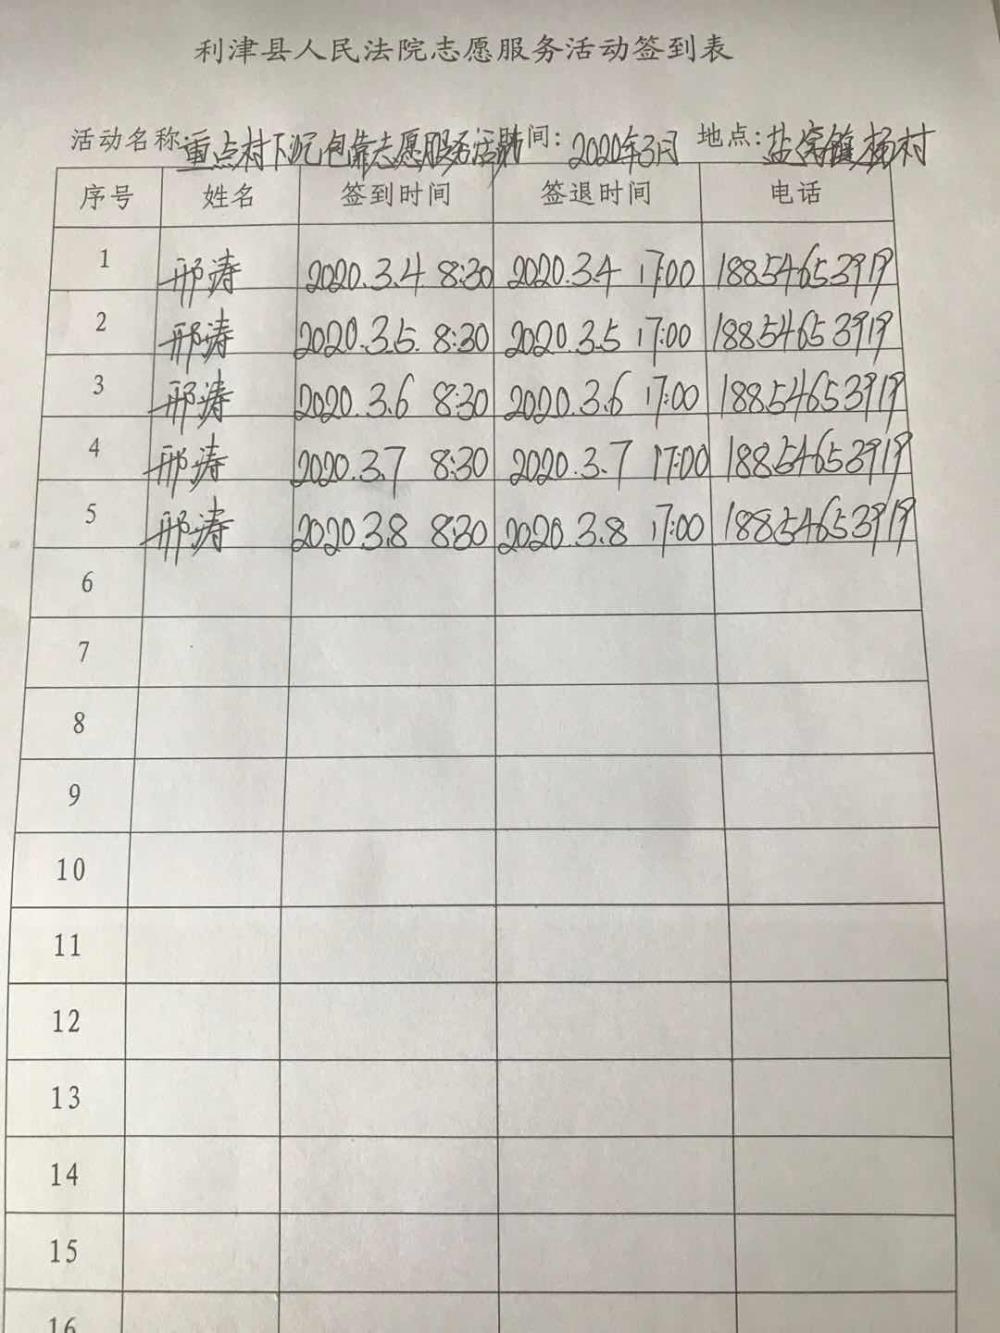 利津县人民法院志愿服务活动签到表
活动名称:重点村下沉包靠志愿服务活动 时间: 2020年3月 地点:盐窝镇杨村
序号 姓名 签到时间 签退时间 电话
1 邢涛 2020.3.4 8:30 2020.3.4 17:00 18854653919
2 邢涛 2020.3.5 8:30 2020.3.5 17:00 18854653919
3 邢涛 2020.3.6 8:30 2020.3.6 17:00 18854653919
4 邢涛 2020.3.7 8:30 2020.3.7 17:00 18854653919
5 邢涛 2020.3.8 8:30 2020.3.8 17:00 18854653919
6
7
8
9
10
11
12
13
14
15
16